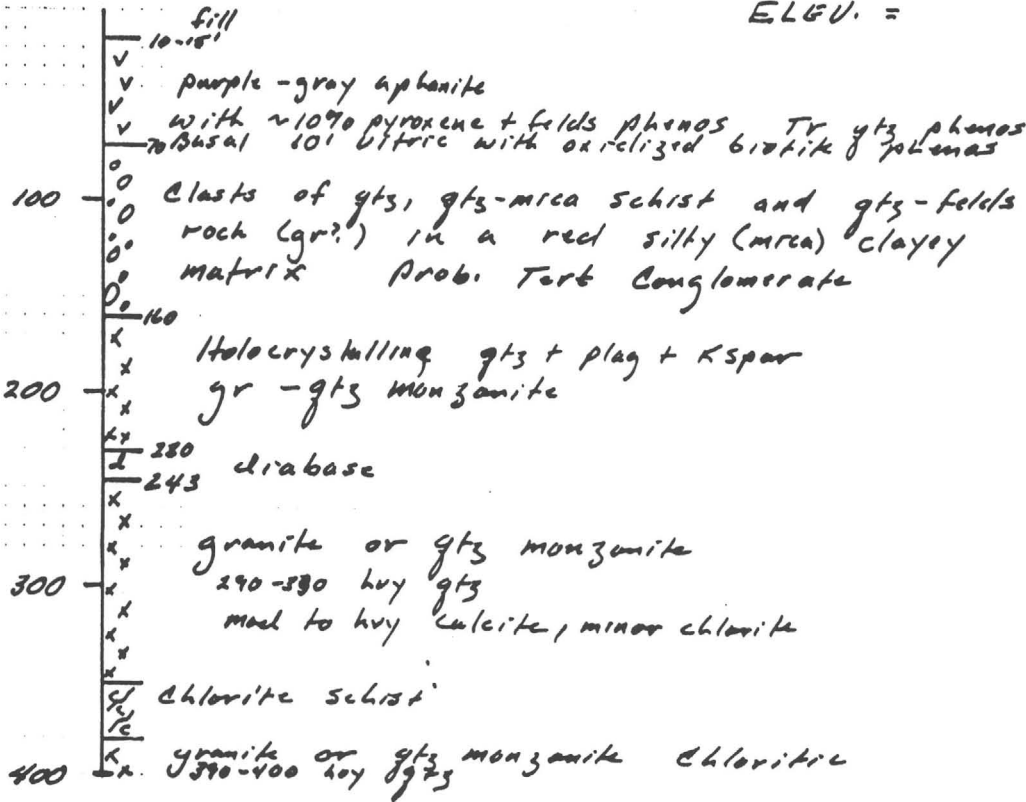 ELEV. =
fill
10-15'
purple-gray aphanite
with ~10% pyroxene + felds phenos Tr qtz phenos
70 Basal 10' vitric with oxidized biotite phenos
100 Clasts of qtz, qtz-mica schist and qtz-felds
rock (gr?) in a red silty (mica) clayey
matrix Prob. Tert Conglomerate
160
Holocrystalline qtz + plag + Kspar
200 gr - qtz monzonite
230
d diabase
243
granite or qtz monzonite
300 290-330 hvy qtz
mod to hvy calcite, minor chlorite
chlorite schist
granite or qtz monzonite chloritic
400 390-400 hvy qtz